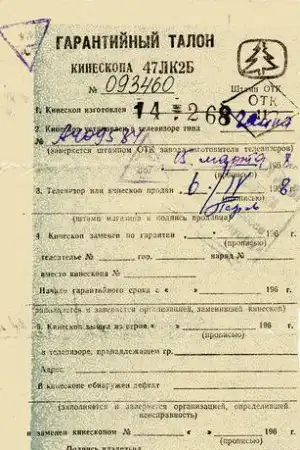 ГАРАНТИЙНЫЙ ТАЛОН
КИНЕСКОПА 47ЛК2Б
№ 093460
Штамп ОТК
ОТК
1. Кинескоп изготовлен 14 2 68
2. Кинескоп установлен в телевизоре типа
№
(заверяется штампом ОТК завода-изготовителя телевизоров)
15 марта 8
3. Телевизор или кинескоп продан 6/IV 8
(прописью)
(штамп магазина и подпись продавца)
4. Кинескоп заменен по гарантии 196 г.
(прописью)
телеателье № гор. наряд №
вместо кинескопа №
Начало гарантийного срока с « » 196 г.
(заполняется и заверяется организацией, заменившей кинескоп)
5. Кинескоп вышел из строя « » 196 г.
(прописью)
в телевизоре, принадлежащем гр.
Адрес
В кинескопе обнаружен дефект
(заполняется и заверяется организацией, определившей
неисправность)
и заменен кинескопом № « » 196 г.
Подпись владельца